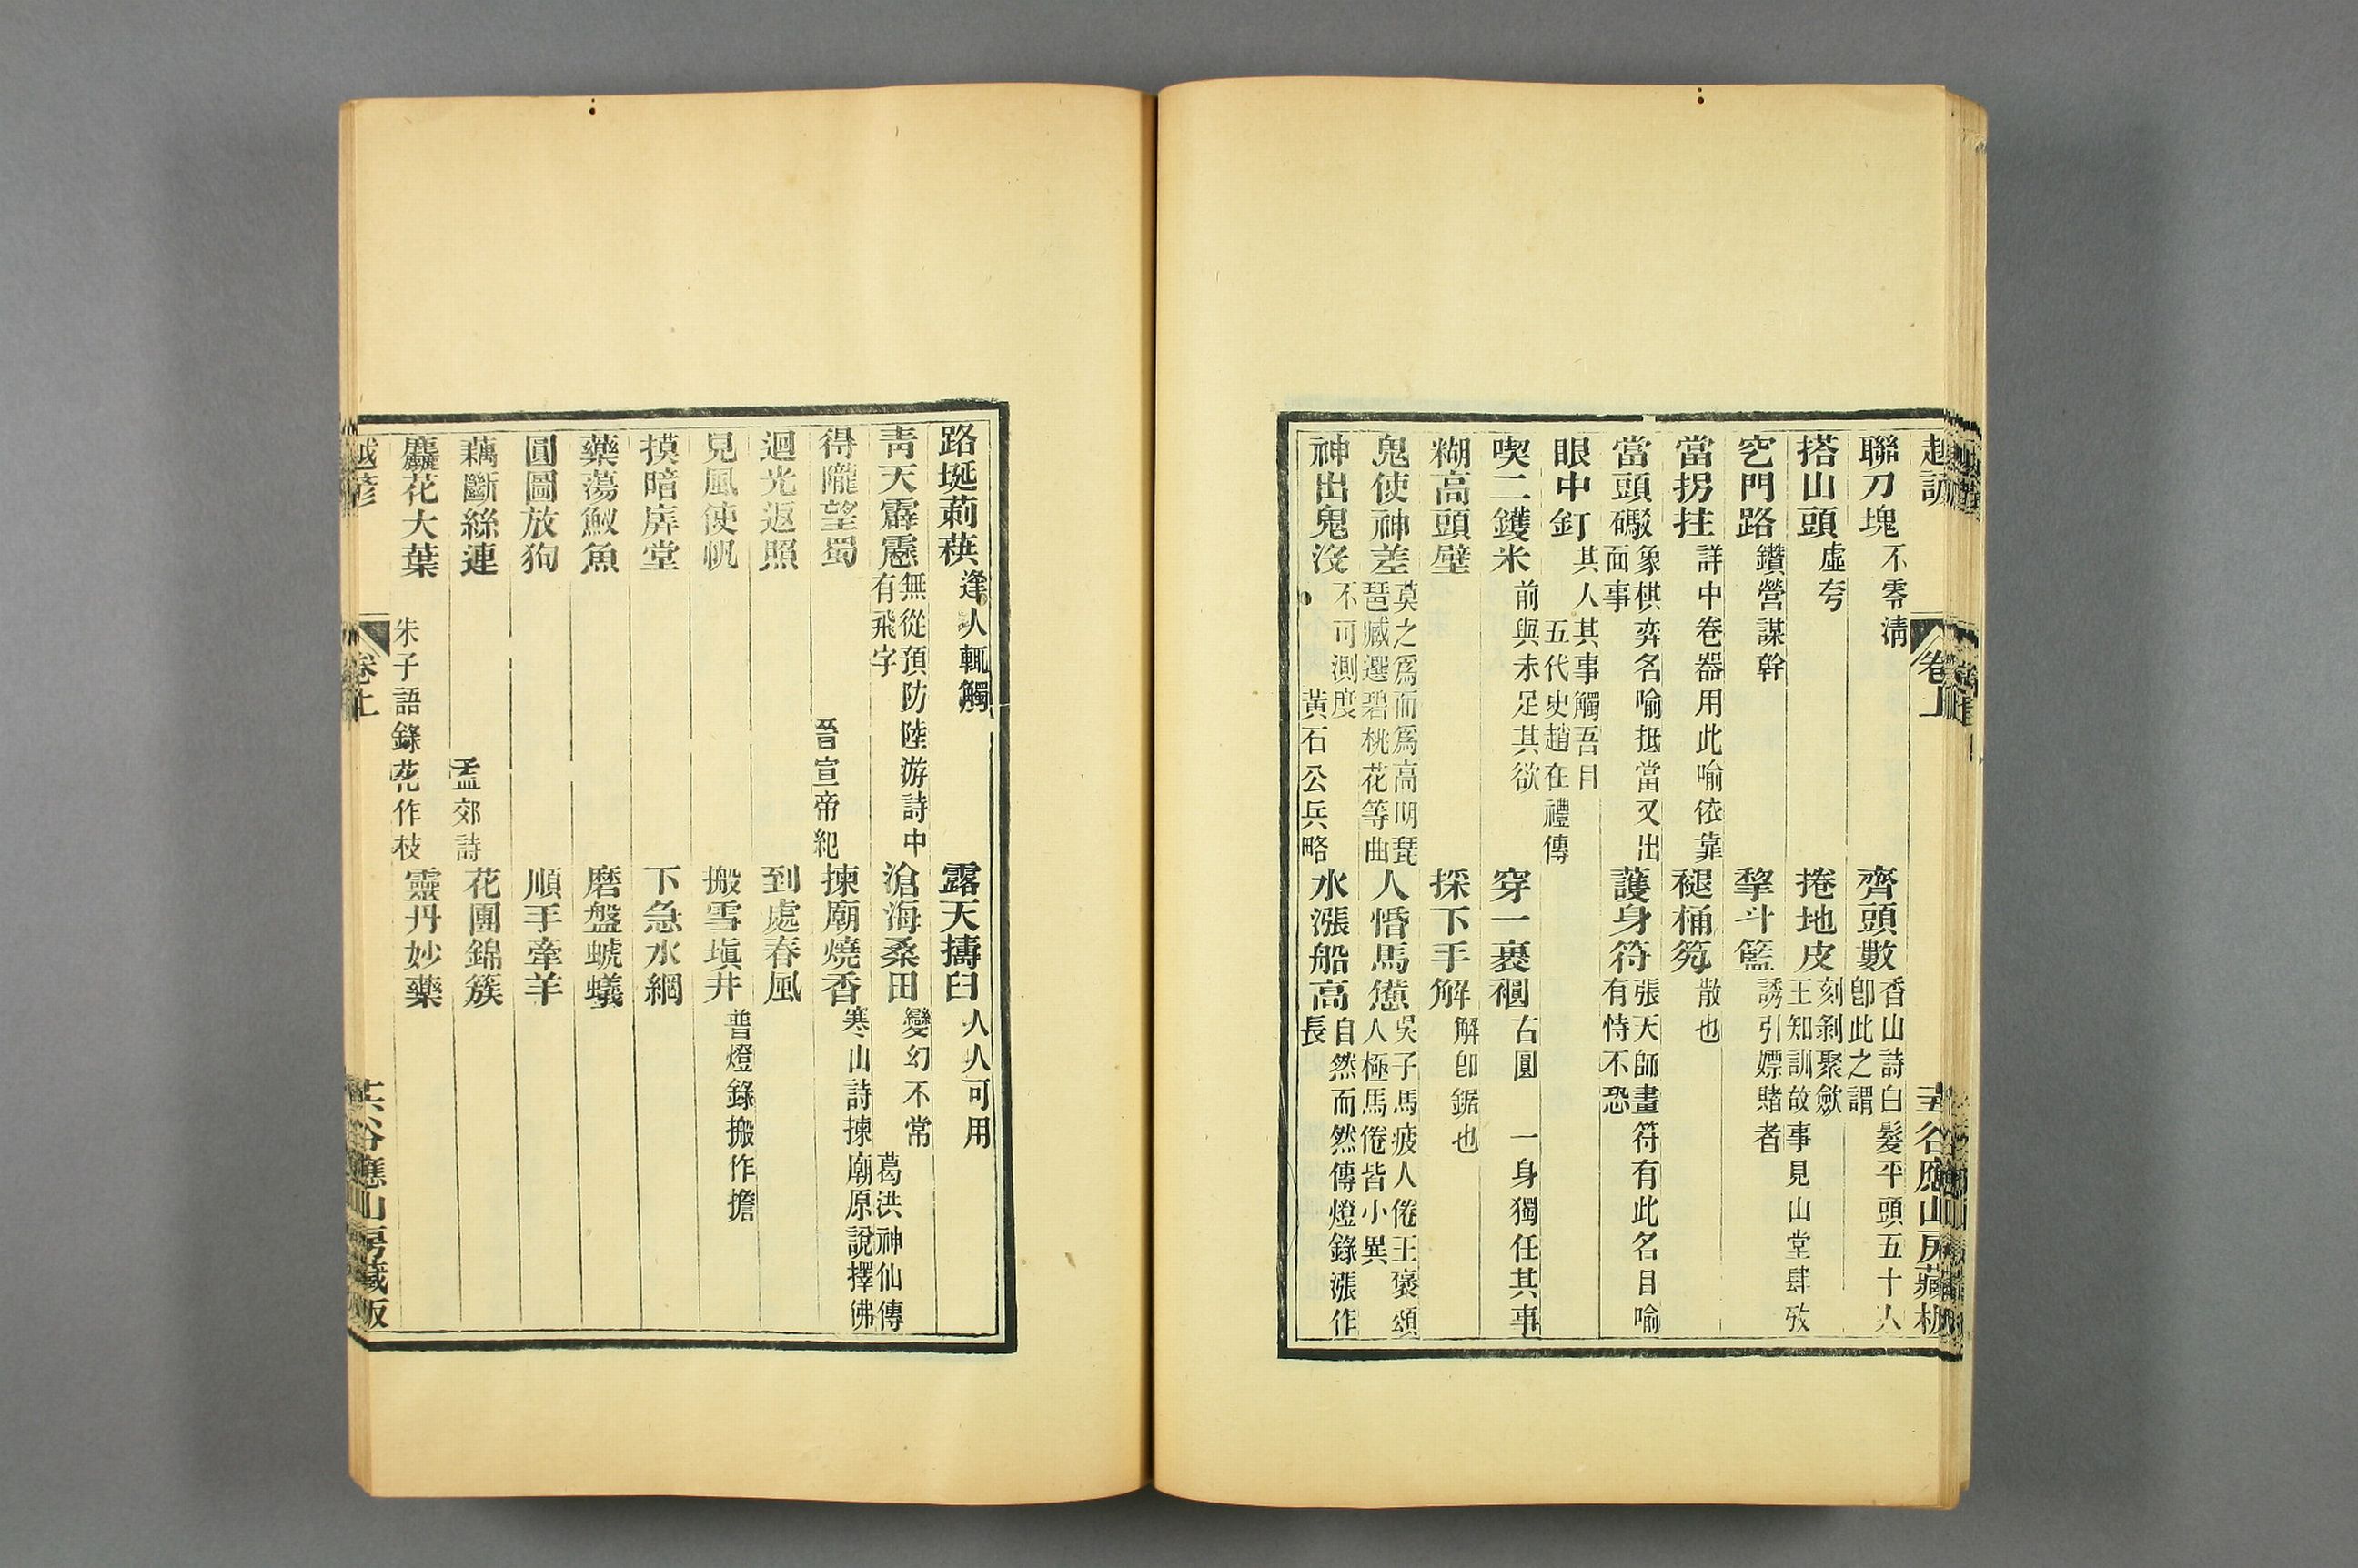 越諺
卷上
谷應山房藏板
聯刀塊 不零淸 齊頭數 香山詩白髮平頭五十人 卽此之謂
搭山頭 虛夸 捲地皮 刻剝聚歛 王知訓故事見山堂肆攷
空門路 鑽營謀幹 揫斗籃 誘引嫖賭者
當拐拄 詳中卷器用此喻依靠 褪桶箍 散也
當頭礮 象棋弈名喻抵當又出面事 護身符 張天師畫符有此名目喻有恃不恐
眼中釘 其人其事觸吾目 五代史趙在禮傳
喫二鑊米 前與未足其欲 穿一裹裍 右圓 一身獨任其事
糊高頭壁 採下手解 解卽鋸也
鬼使神差 莫之爲而爲高明琵琶臧選碧桃花等曲 人惛馬憊 吳子馬疲人倦王褒頌人極馬倦皆小異
神出鬼沒 不可測度 黃石公兵略 水漲船高 自然而然傳燈錄漲作長
路埏莿蒺 逢人輒觸 露天擣臼 人人可用
靑天霹靂 無從預防陸游詩中有飛字 滄海桑田 變幻不常 葛洪神仙傳
得隴望蜀 晉宣帝紀 揀廟燒香 寒山詩揀廟原說擇佛
迴光返照 到處春風
見風使帆 搬雪塡井 普燈錄搬作擔
摸暗㡿堂 下急水網
藥蕩鮁魚 磨盤蟻
圓圖放狗 順手牽羊
藕斷絲連 孟郊詩 花團錦簇
麤花大葉 朱子語錄花作枝 靈丹妙藥
越諺
卷上
谷應山房藏版